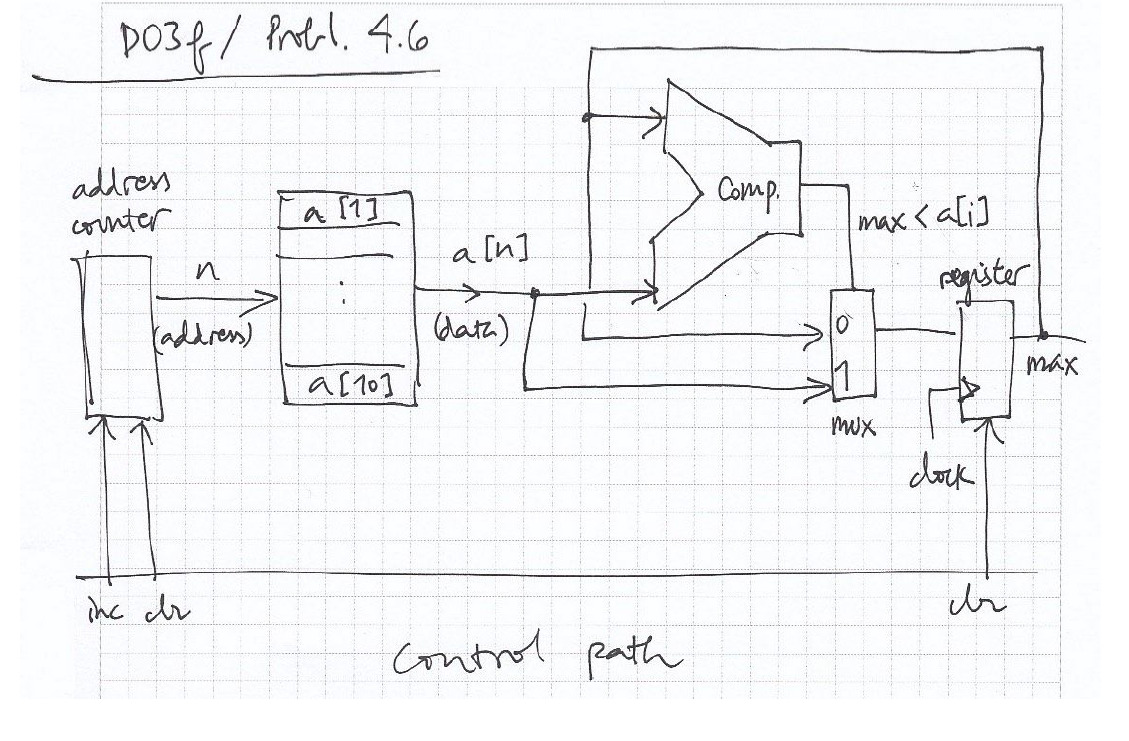 D03f / Probl. 4.6
address
counter
n
(address)
a [1]
⋮
a [10]
a [n]
(data)
Comp.
max < a[i]
0
1
mux
register
max
clock
inc clr
clr
Control path